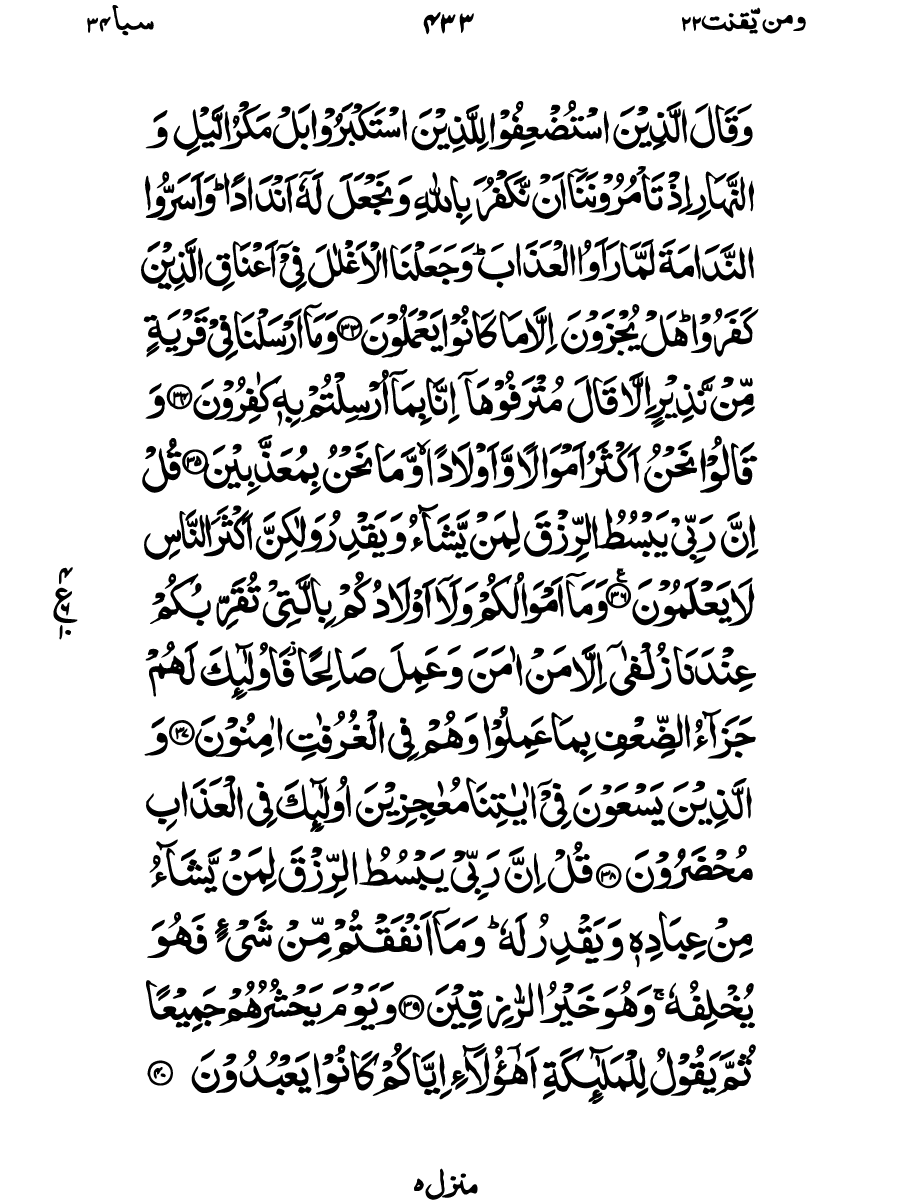 ومن يّقنت٢٢ ٤٣٣ سبا ٣٤
وَقَالَ الَّذِيْنَ اسْتُضْعِفُوْا لِلَّذِيْنَ اسْتَكْبَرُوْا بَلْ مَكْرُ الَّيْلِ وَ
النَّهَارِ اِذْ تَاْمُرُوْنَنَاۤ اَنْ نَّكْفُرَ بِاللّٰهِ وَ نَجْعَلَ لَهٗۤ اَنْدَادًا ؕ وَ اَسَرُّوا
النَّدَامَةَ لَمَّا رَاَوُا الْعَذَابَ ؕ وَ جَعَلْنَا الْاَغْلٰلَ فِيْۤ اَعْنَاقِ الَّذِيْنَ
كَفَرُوْا ؕ هَلْ يُجْزَوْنَ اِلَّا مَا كَانُوْا يَعْمَلُوْنَ ﴿۳۳﴾ وَ مَاۤ اَرْسَلْنَا فِيْ قَرْيَةٍ
مِّنْ نَّذِيْرٍ اِلَّا قَالَ مُتْرَفُوْهَاۤ اِنَّا بِمَاۤ اُرْسِلْتُمْ بِهٖ كٰفِرُوْنَ ﴿۳۴﴾ وَ
قَالُوْا نَحْنُ اَكْثَرُ اَمْوَالًا وَّ اَوْلَادًا ۙ وَّ مَا نَحْنُ بِمُعَذَّبِيْنَ ﴿۳۵﴾ قُلْ
اِنَّ رَبِّيْ يَبْسُطُ الرِّزْقَ لِمَنْ يَّشَآءُ وَ يَقْدِرُ وَلٰكِنَّ اَكْثَرَ النَّاسِ
لَا يَعْلَمُوْنَ ﴿۳۶﴾ وَ مَاۤ اَمْوَالُكُمْ وَ لَاۤ اَوْلَادُكُمْ بِالَّتِيْ تُقَرِّبُكُمْ
ع
عِنْدَنَا زُلْفٰۤى اِلَّا مَنْ اٰمَنَ وَ عَمِلَ صَالِحًا ؗ فَاُولٰٓىِٕكَ لَهُمْ
جَزَآءُ الضِّعْفِ بِمَا عَمِلُوْا وَ هُمْ فِي الْغُرُفٰتِ اٰمِنُوْنَ ﴿۳۷﴾ وَ
الَّذِيْنَ يَسْعَوْنَ فِيْۤ اٰيٰتِنَا مُعٰجِزِيْنَ اُولٰٓىِٕكَ فِي الْعَذَابِ
مُحْضَرُوْنَ ﴿۳۸﴾ قُلْ اِنَّ رَبِّيْ يَبْسُطُ الرِّزْقَ لِمَنْ يَّشَآءُ
مِنْ عِبَادِهٖ وَ يَقْدِرُ لَهٗ ؕ وَ مَاۤ اَنْفَقْتُمْ مِّنْ شَيْءٍ فَهُوَ
يُخْلِفُهٗ ۚ وَ هُوَ خَيْرُ الرّٰزِقِيْنَ ﴿۳۹﴾ وَ يَوْمَ يَحْشُرُهُمْ جَمِيْعًا
ثُمَّ يَقُوْلُ لِلْمَلٰٓىِٕكَةِ اَهٰۤؤُلَآءِ اِيَّاكُمْ كَانُوْا يَعْبُدُوْنَ ﴿۴۰﴾
منزل ۵